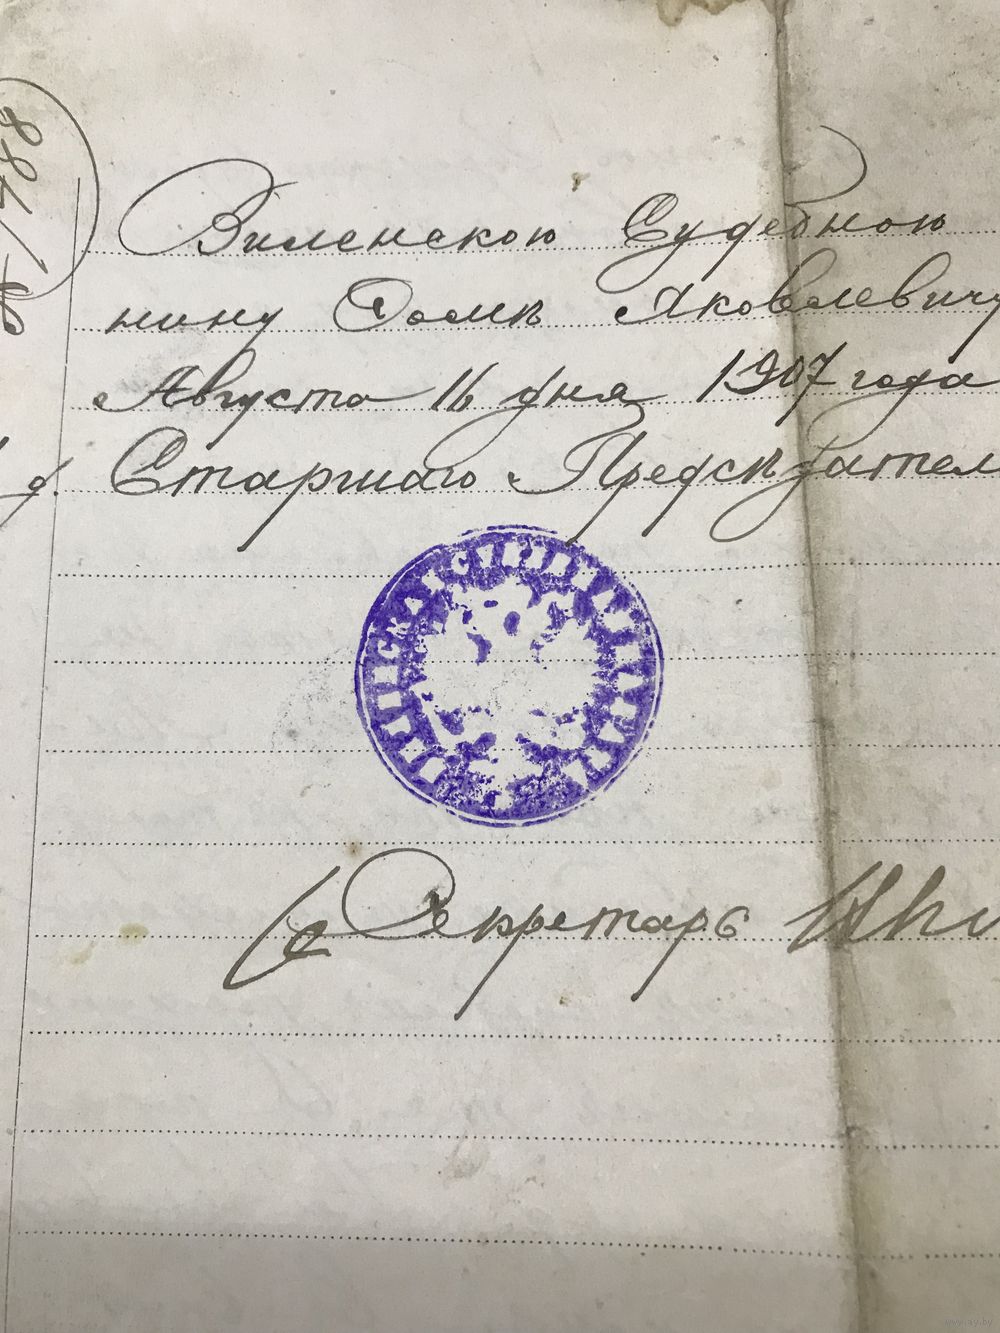 № 1788
Виленскою Судебною
нину Ѳомѣ Яковлевичу
Августа 16 дня 1907 года
д. Старшаго Предсѣдател
Секретарь
www.ay.by